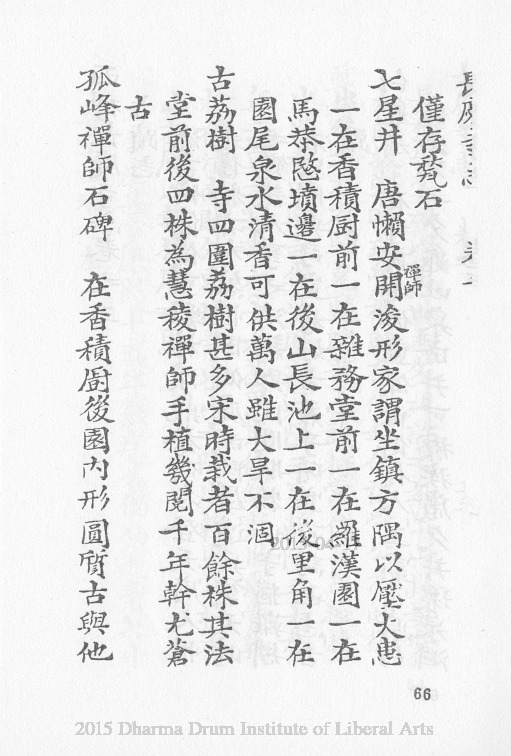 長慶寺志 卷一
僅存甃石
七星井 唐懶安禪師開浚形家謂坐鎮方隅以壓火患
一在香積厨前一在雜務堂前一在羅漢園一在
馬恭愍墳邊一在後山長池上一在後里角一在
園尾泉水清香可供萬人雖大旱不涸
古荔樹 寺四圍荔樹甚多宋時栽者百餘株其法
堂前後四株為慧稜禪師手植幾閱千年幹尤蒼
古
孤峰禪師石碑 在香積厨後園內形圓質古與他
66
2015 Dharma Drum Institute of Liberal Arts